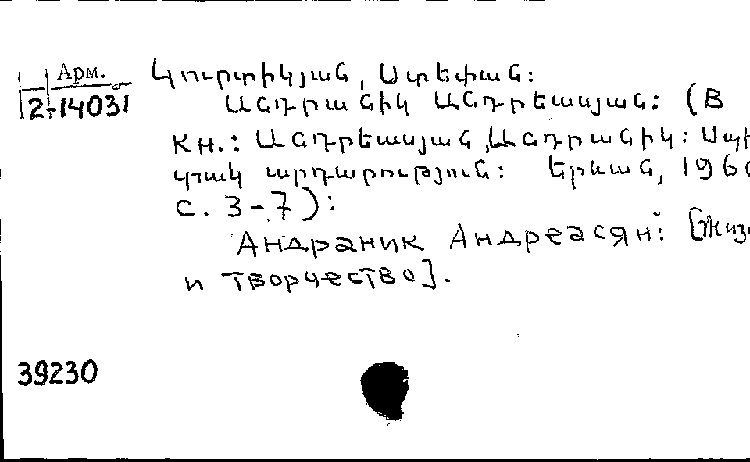 Арм.
2-14031
Կուրտիկյան, Ստեփան:
Անդրանիկ Անդրեասյան: (В
кн.: Անդրեասյան Անդրանիկ: Սպի
կուրտակ արդարություն: Երևան, 196
с. 3-7):
Андраник Андреасян: [Жиз
и творчество].
39230